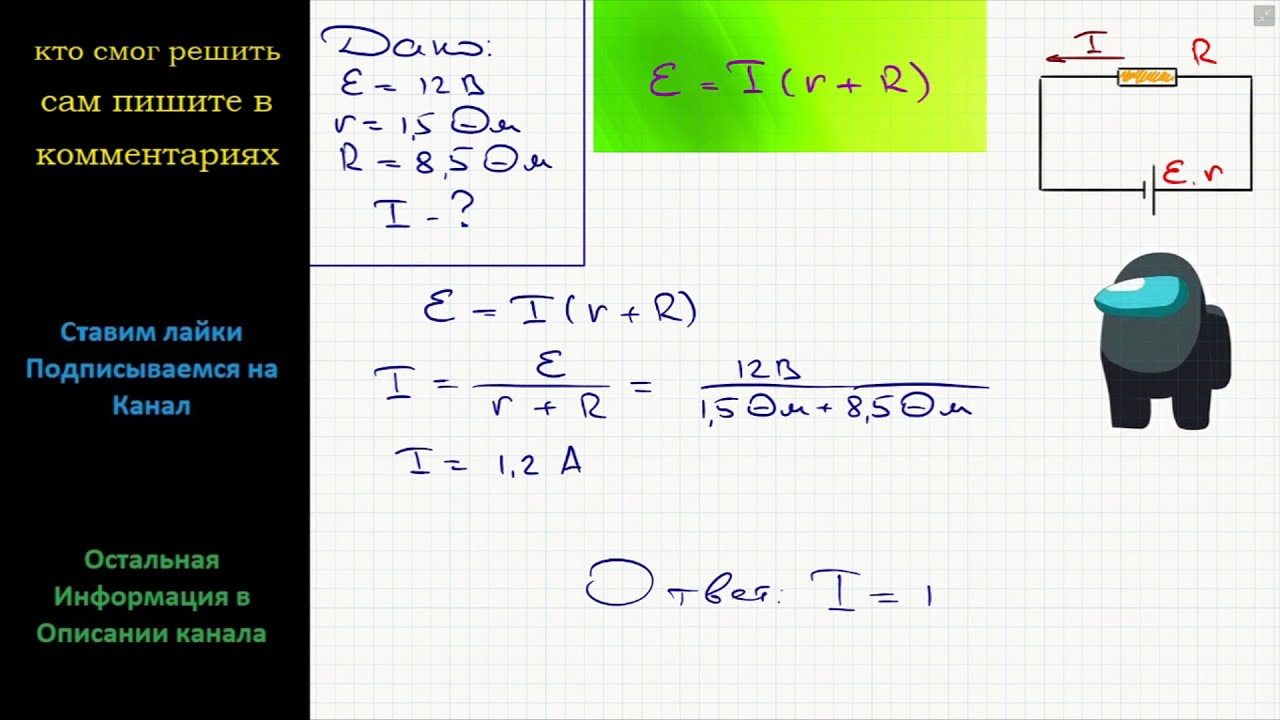 кто смог решить
сам пишите в
комментариях
Ставим лайки
Подписываемся на
Канал
Остальная
Информация в
Описании канала
Дано:
ℰ = 12 В
r = 1,5 Ом
R = 8,5 Ом
I - ?
ℰ = I (r + R)
I
R
ℰ, r
ℰ = I (r + R)
I = ℰ / (r + R) = 12 В / (1,5 Ом + 8,5 Ом)
I = 1,2 А
Ответ: I = 1